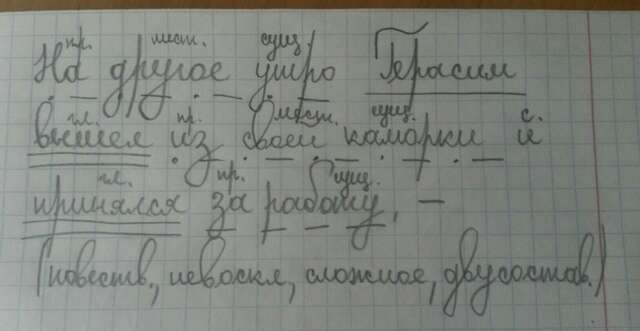 пр. мест. сущ.
На другое утро Герасим
гл. пр. мест. сущ. с.
вышел из своей каморки и
гл. пр. сущ.
принялся за работу, –
(повеств, невоскл, сложное, двусостав.)